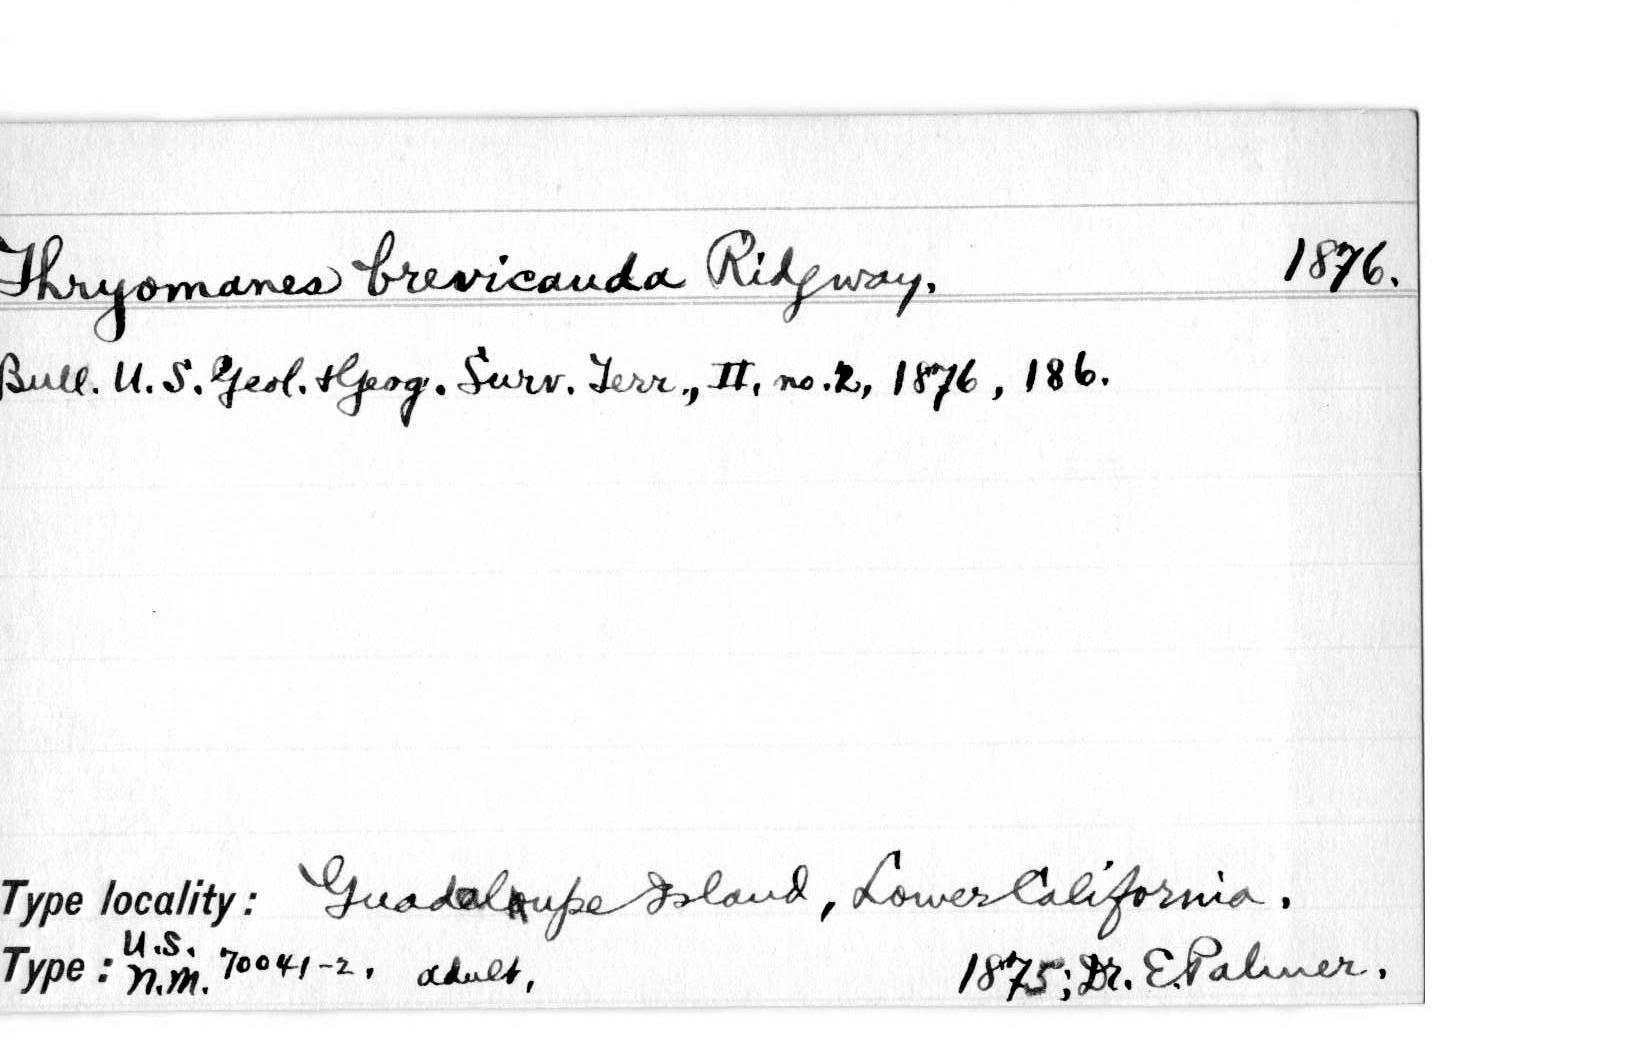 Thryomanes brevicauda Ridgway. 1876.
Bull. U.S. Geol. & Geog. Surv. Terr., II, no. 2, 1876, 186.
Type locality: Guadeloupe Island, Lower California.
Type: U.S. N.M. 70041-2. adult, 1875; Dr. E. Palmer.